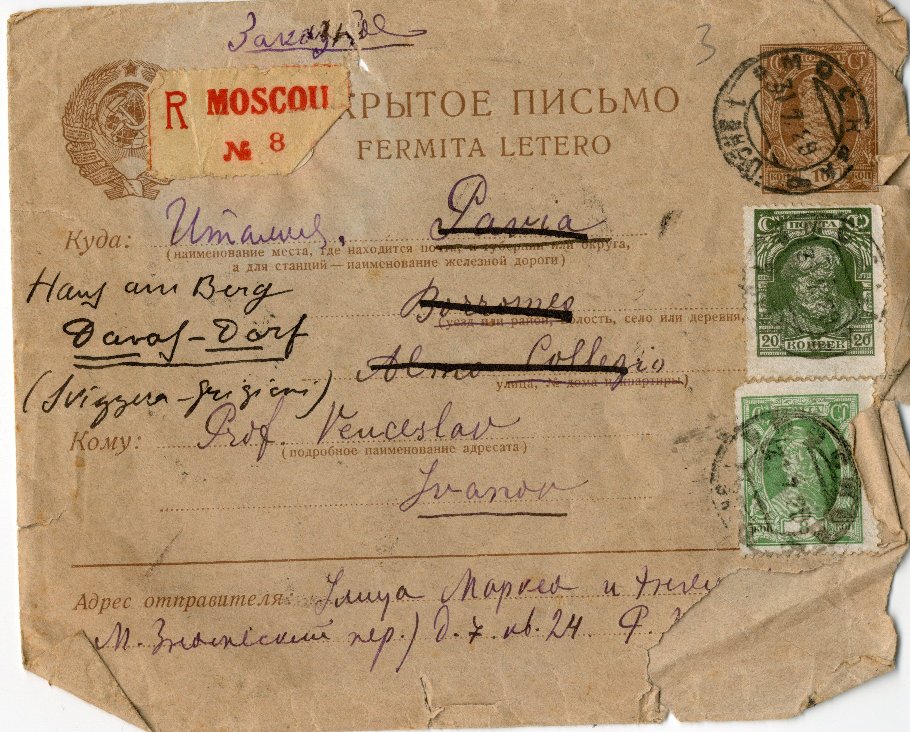 Заказное
3
R MOSCOU
№ 8
КРЫТОЕ ПИСЬМО
FERMITA LETERO
Куда: Италия, Pavia
(наименование места, где находится или округа,
а для станций—наименование железной дороги)
Haus am Berg
Borromeo
(уезд или район, волость, село или деревня,
Davos-Dorf
Almo Collegio
улица, № дома и квартиры)
(Svizzera-Grigioni)
Кому: Prof. Venceslav
(подробное наименование адресата)
Ivanov
Адрес отправителя: Улица Маркса и
М. Знаменский пер.) д. 7. кв. 24. Ф.
10
КОП КОП
ПОЧТА
20 КОПЕЕК 20